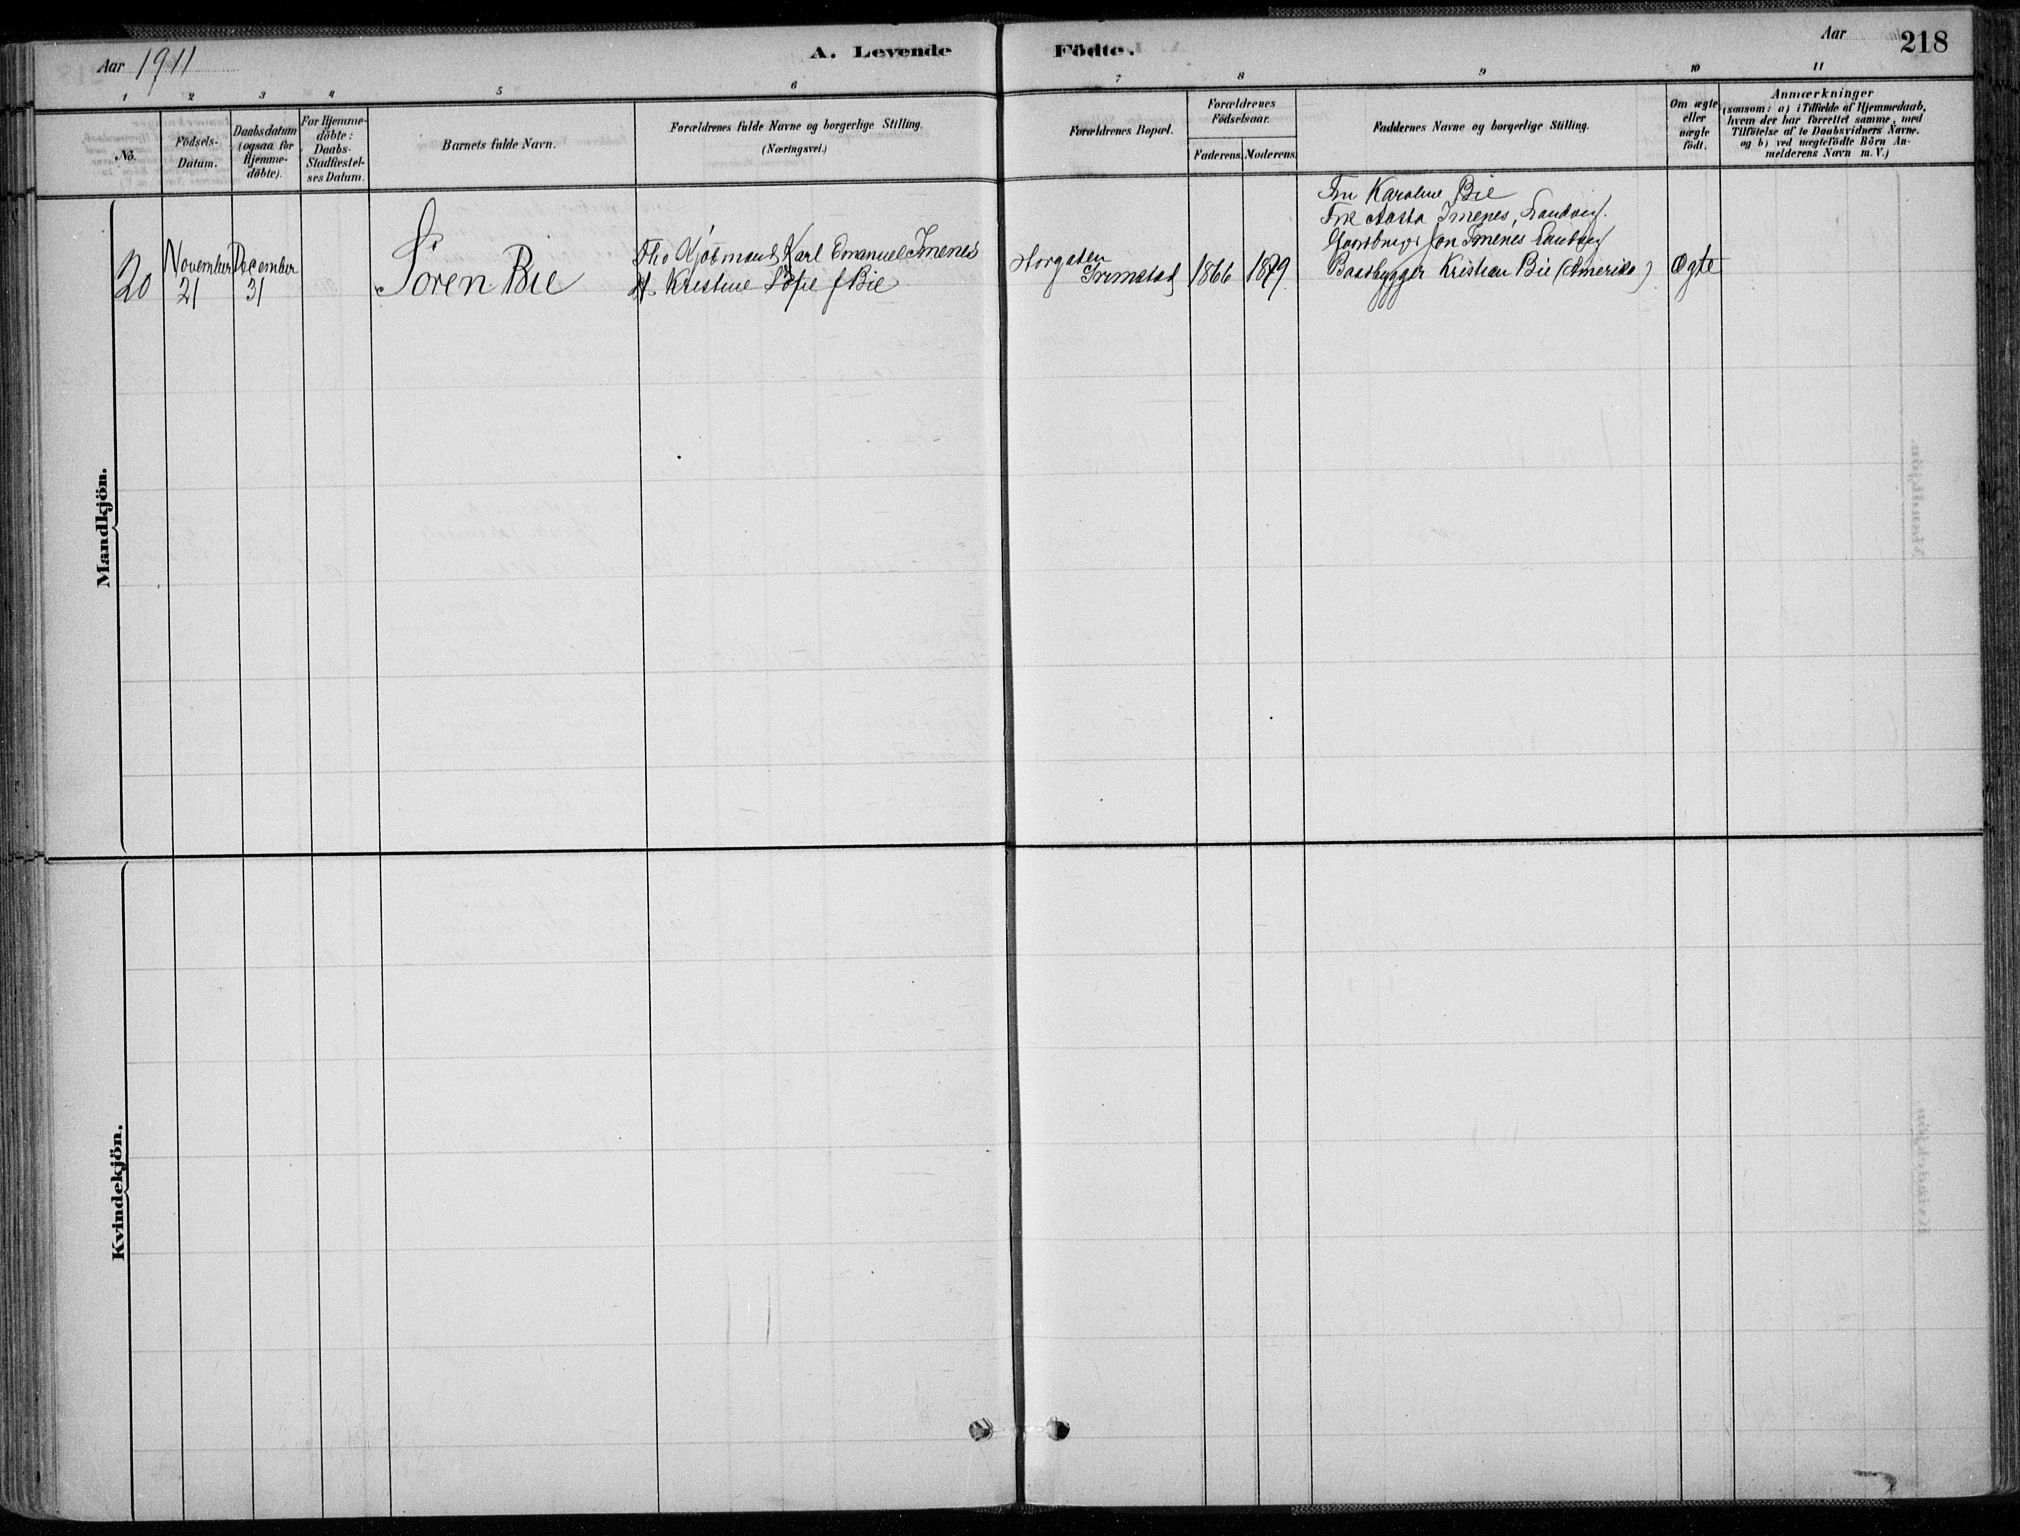 Aar 1911
A. Levende Födte.
Aar
218
1 2 3 4 5 6 7 8 9 10 11
No.
Födsels-
Datum.
Daabsdatum
(ogsaa for
Hjemme-
döbte).
For Hjemme-
döbte:
Daabs-
Stadfæstel-
ses Datum.
Barnets fulde Navn.
Forældrenes fulde Navne og borgerlige Stilling.
(Næringsvei.)
Forældrenes Bopæl.
Forældrenes
Födselsaar.
Faderens. Moderens.
Faddernes Navne og borgerlige Stilling.
Om ægte
eller
uægte
födt.
Anmærkninger
(saasom: a) i Tilfælde af Hjemmedaab,
hvem der har forrettet samme, med
Tilföielse af to Daabsvidners Navne.
og b) ved uægtefödte Börn An-
melderens Navn m. V.)
Mandkjön.
20
November
21
December
31
Sören Bie
Kjöbmand Karl Emanuel Imenes
H. Kristine Sofie f Bie
Grimstad
1866
1879
Fru Karoline Bie
Frk Aasta Imenes, Landvig.
Gaardbruger Jon Imenes Landvig
Baadbygger Kristian Bie (Amerika)
Ægte
Kvindekjön.